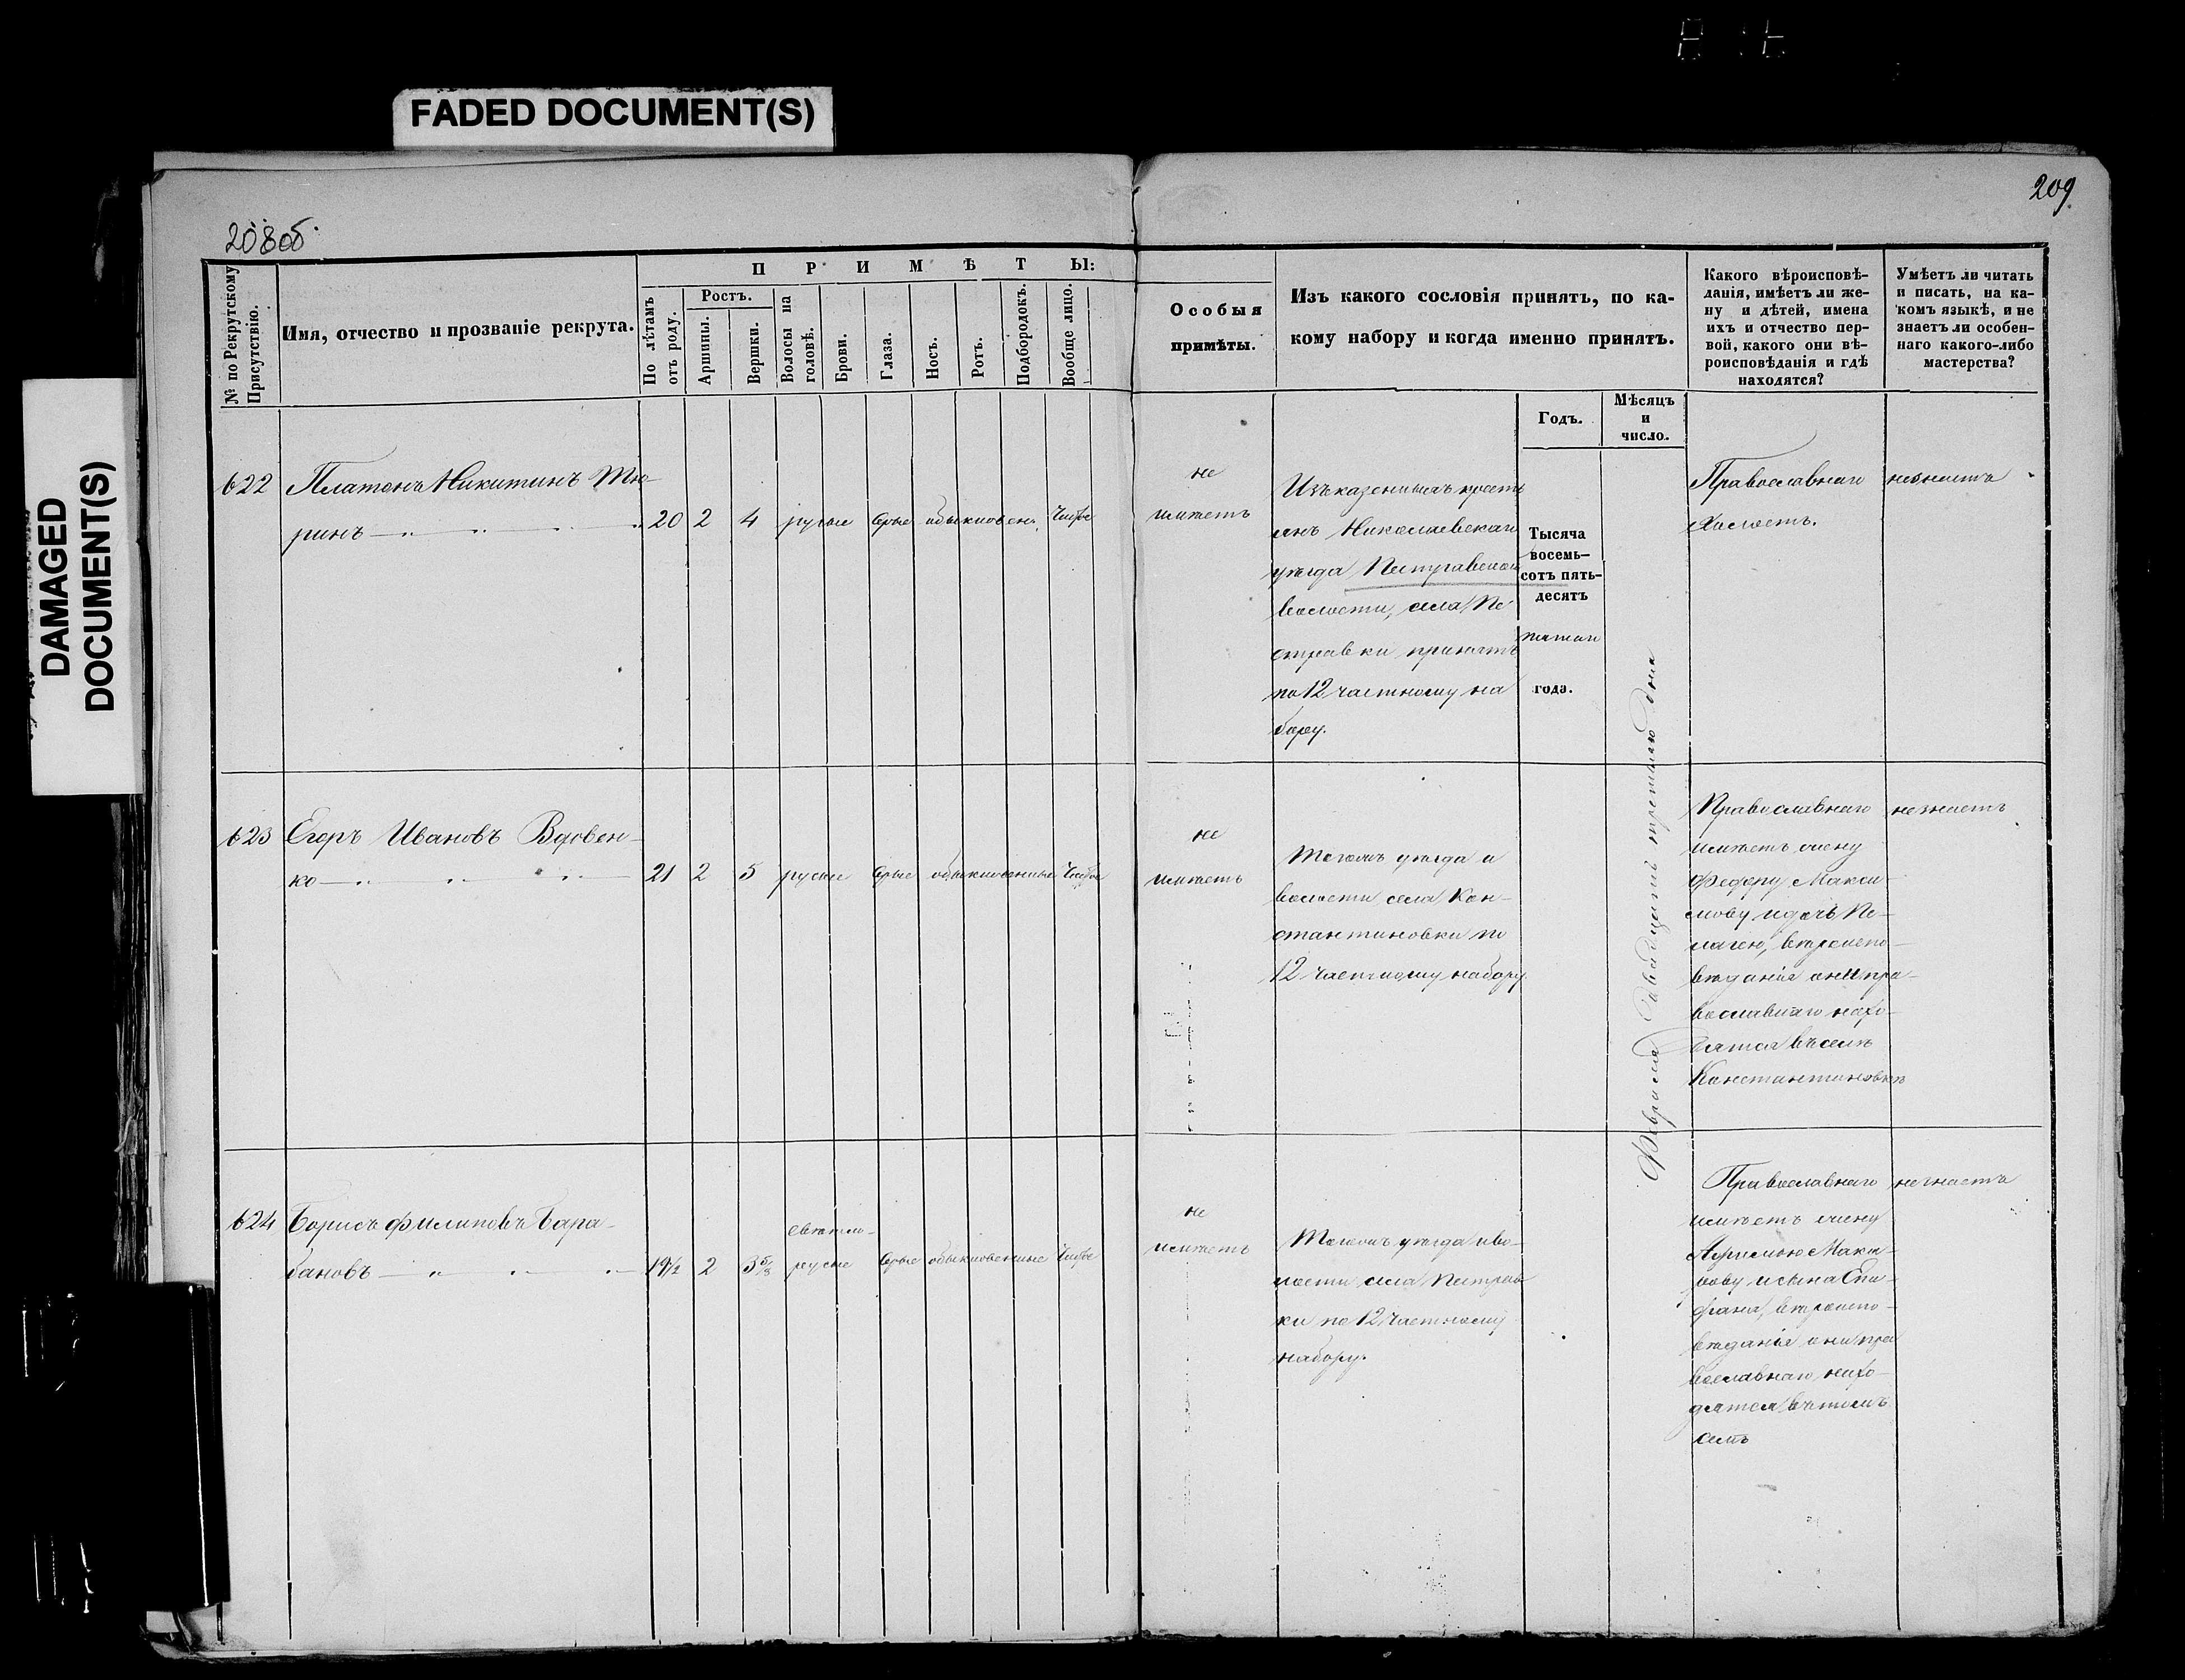 FADED DOCUMENT(S)
DAMAGED
DOCUMENT(S)
208об.
209.
№ по Рекрутскому
Присутствію.
Имя, отчество и прозваніе рекрута.
П Р И М Ѣ Т Ы:
По лѣтамъ
отъ роду.
Ростъ.
Аршины.
Вершки.
Волосы на
головѣ.
Брови.
Глаза.
Носъ.
Ротъ.
Подбородокъ.
Вообще лицо.
Особыя
примѣты.
Изъ какого сословія принятъ, по ка-
кому набору и когда именно принятъ.
Годъ.
Мѣсяцъ
и
число.
Какого вѣроисповѣ-
данія, имѣетъ ли же-
ну и дѣтей, имена
ихъ и отчество пер-
вой, какого они вѣ-
роисповѣданія и гдѣ
находятся?
Умѣетъ ли читать
и писать, на ка-
комъ языкѣ, и не
знаетъ ли особен-
наго какого-либо
мастерства?
622
Платонъ Никитинъ Тю-
ринъ
20 2 4 русые сѣрые обыкновен. Чистое
не
имѣетъ
Изъ казенныхъ кресть
янъ Николаевскаго
уѣзда Пестравской
волости, села Пе-
стравки принятъ
по 12 частному на
бору.
Тысяча
восемь-
сотъ пять-
десятъ
пятаго
года.
Февраля двадцать третьяго дня
Православнаго
холостъ.
незнаетъ
623
Егоръ Ивановъ Вдовен-
ко
21 2 5 русые сѣрые обыкновенные Чистое
не
имѣетъ
Тогожъ уѣзда и
волости села Кон-
стантиновки по
12 частному набору
Православнаго
имѣетъ жену
Федору Макси-
мову и дочь Пе-
лагею, вѣроиспо-
вѣданія они пра-
вославнаго нахо-
дятся въ селѣ
Константиновкѣ
незнаетъ
624
Борисъ Филиповъ Бара-
бановъ
19½ 2 3⅝ свѣтло-
русые сѣрые обыкновенные Чистое
не
имѣетъ
Тогожъ уѣзда и во-
лости села Пестрав
ки по 12 частному
набору.
Православнаго
имѣетъ жену
и сына Епи-
фана, вѣроиспо-
вѣданія они пра
вославнаго нахо-
дятся въ томъ
селѣ
незнаетъ